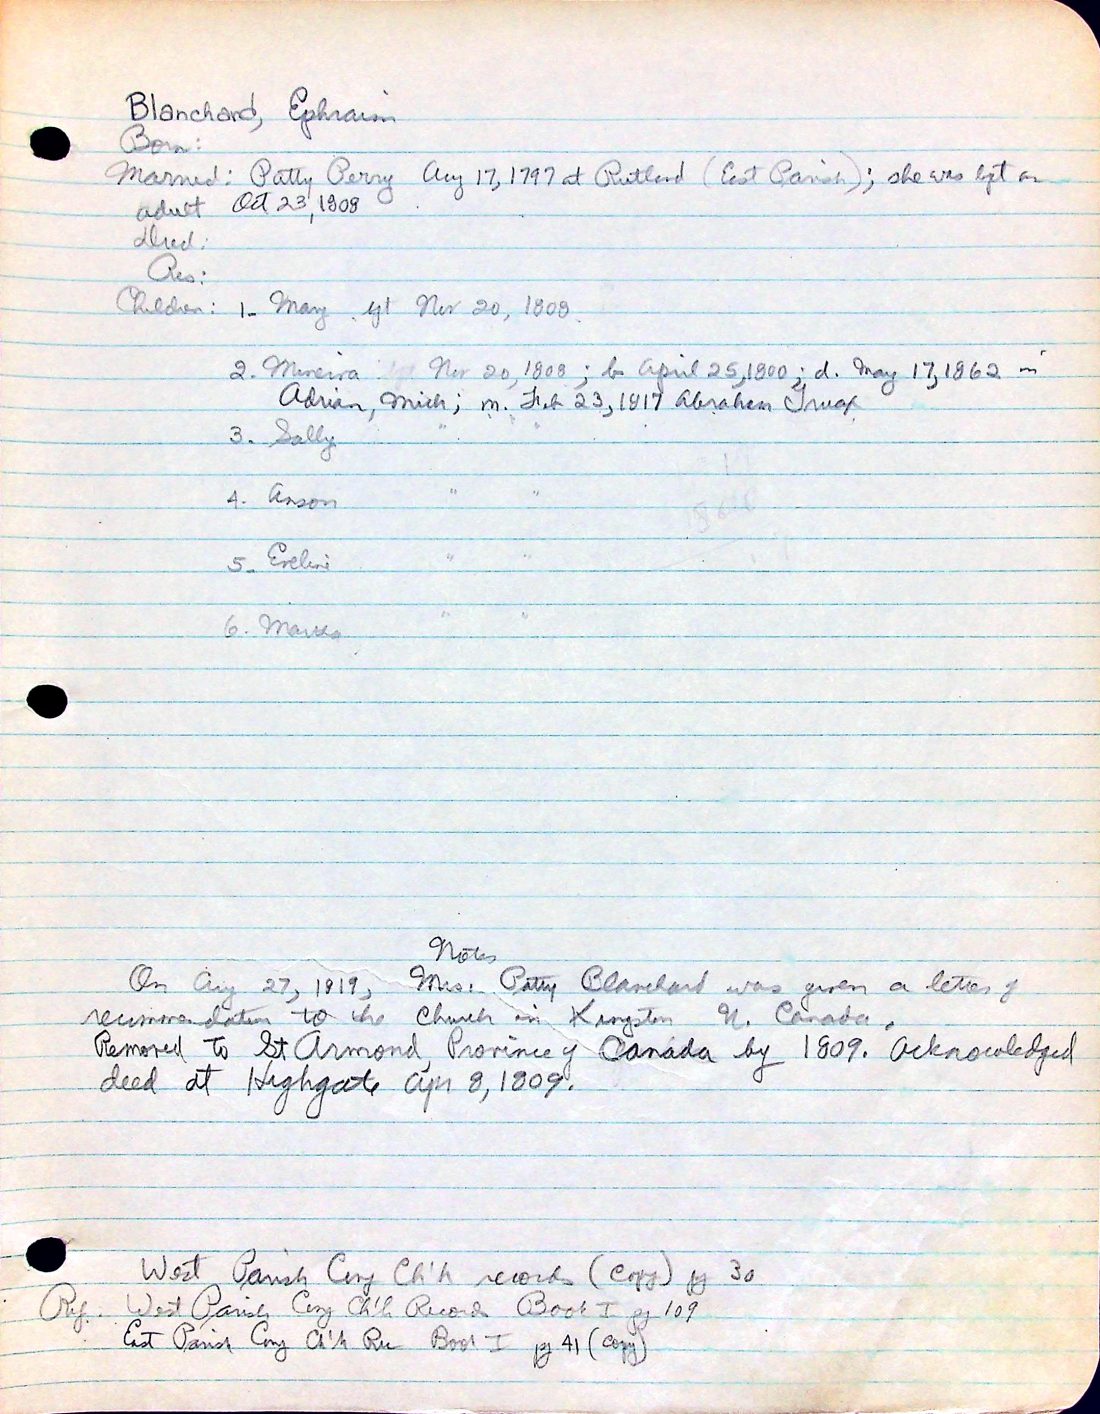 Blanchard, Ephraim
Born:
Married: Patty Perry Aug 17, 1797 at Rutland (East Parish); she was bpt an
adult Oct 23, 1808
Died:
Res:
Children: 1- Mary bpt Nov 20, 1808
2. Minerva bpt Nov 20, 1808; b April 25, 1800; d. May 17, 1862 in
Adrian, Mich; m. Feb 23, 1817 Abraham Truax
3. Sally " " "
4. Anson " "
5. Eveline " "
6. " "
Notes
On Aug 27, 1819, Mrs. Patty Blanchard was given a letter of
recommendation to the Church in Kingston U. Canada.
Removed to St Armond, Province of Canada by 1809. Acknowledged
deed at Highgate Apr 8, 1809.
West Parish Cong Ch'h records (copy) pg 30
Ref. West Parish Cong Ch'h Records Book I pg 109
East Parish Cong Ch'h Rec Book I pg 41 (copy)